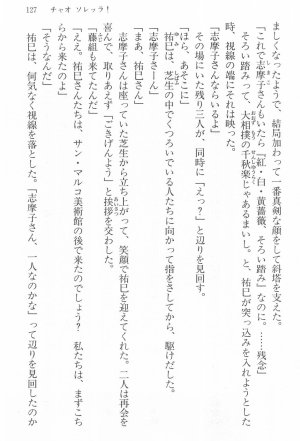 127　チャオ ソレッラ！
ましくなったようで、結局加わって一番真剣な顔をして斜塔を支えた。
「これで志摩子さんもいたら『紅・白・黄薔薇、そろい踏み』なのに。……残念」
そろい踏みって、大相撲の千秋楽じゃあるまいし。と、祐巳が突っ込みを入れようとした
時、視線の端にそれは映った。
「志摩子さんならいるよ」
「えっ？」
その場にいた残り三人が、同時に「えっ？」と辺りを見回す。
「ほら、あそこに」
祐巳は、芝生の中でくつろいでいる人たちに向かって指をさしてから、駆けだした。
「志摩子さーん」
「まあ、祐巳さん」
志摩子さんは座っていた芝生から立ち上がって、笑顔で祐巳を迎えてくれた。二人は再会を
喜んで、取りあえず「ごきげんよう」と挨拶を交わした。
「藤組も来てたんだ」
「ええ。祐巳さんたちは、サン・マルコ美術館の後で来たのでしょう？　私たちは、まずこち
らから来たのよ」
「そうなんだ」
祐巳は、何気なく視線を落とした。「志摩子さん、一人なのかな」って辺りを見回したのか